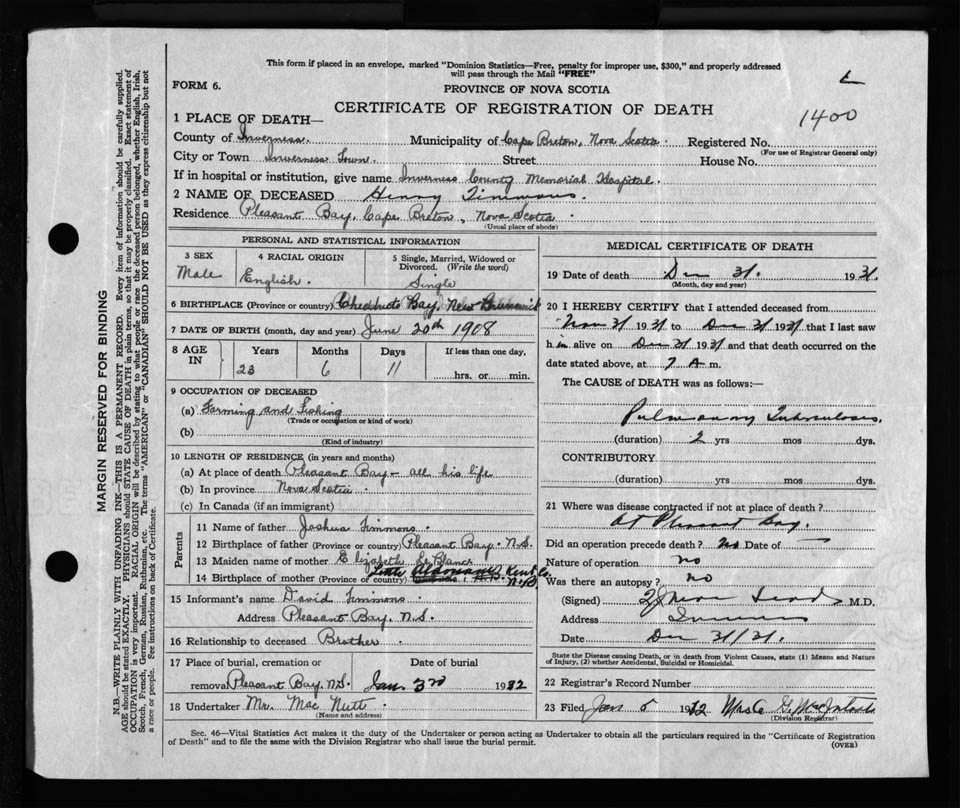 This form if placed in an envelope, marked "Dominion Statistics—Free, penalty for improper use, $300," and properly addressed
will pass through the Mail "FREE"
FORM 6.
PROVINCE OF NOVA SCOTIA
CERTIFICATE OF REGISTRATION OF DEATH
1400
1 PLACE OF DEATH—
County of Inverness. Municipality of Cape Breton, Nova Scotia. Registered No.
(For use of Registrar General only)
City or Town Inverness Town. Street House No.
If in hospital or institution, give name Inverness County Memorial Hospital.
2 NAME OF DECEASED Henry Timmons.
Residence Pleasant Bay, Cape Breton, Nova Scotia.
(Usual place of abode)
PERSONAL AND STATISTICAL INFORMATION
3 SEX Male
4 RACIAL ORIGIN English.
5 Single, Married, Widowed or Divorced. (Write the word) Single
6 BIRTHPLACE (Province or country) Bay, New Brunswick
7 DATE OF BIRTH (month, day and year) June 20th 1908
8 AGE IN Years Months Days If less than one day,
23 6 11 hrs. or min.
9 OCCUPATION OF DECEASED
(a) Farming and Fishing
(Trade or occupation or kind of work)
(b)
(Kind of industry)
10 LENGTH OF RESIDENCE (in years and months)
(a) At place of death Pleasant Bay - all his life
(b) In province Nova Scotia.
(c) In Canada (if an immigrant)
Parents
11 Name of father Joshua Timmons.
12 Birthplace of father (Province or country) Pleasant Bay. N.S.
13 Maiden name of mother Elizabeth
14 Birthplace of mother (Province or country) Kent Co. N.B.
15 Informant's name David Timmons.
Address Pleasant Bay, N.S.
16 Relationship to deceased Brother.
17 Place of burial, cremation or Date of burial
removal Pleasant Bay, N.S. Jan. 3rd 1932
18 Undertaker Mr. Mac Nutt.
(Name and address)
MEDICAL CERTIFICATE OF DEATH
19 Date of death Dec 31. 1931
(Month, day and year)
20 I HEREBY CERTIFY that I attended deceased from
Nov 31 1931 to Dec 31 1931 that I last saw
him alive on Dec 31 1931 and that death occurred on the
date stated above, at 7 A m.
The CAUSE of DEATH was as follows:—
Pulmonary Tuberculosis.
(duration) 2 yrs mos dys.
CONTRIBUTORY
(duration) yrs mos dys.
21 Where was disease contracted if not at place of death?
At Pleasant Bay.
Did an operation precede death? No Date of —
Nature of operation no
Was there an autopsy? no
(Signed) M.D.
Address Inverness
Date Dec 31/31.
State the Disease causing Death, or in death from Violent Causes, state (1) Means and Nature
of Injury, (2) whether Accidental, Suicidal or Homicidal.
22 Registrar's Record Number
23 Filed Jan 5 1932 Mrs G. McIntosh
(Division Registrar)
Sec. 46—Vital Statistics Act makes it the duty of the Undertaker or person acting as Undertaker to obtain all the particulars required in the "Certificate of Registration
of Death" and to file the same with the Division Registrar who shall issue the burial permit.
(OVER)
MARGIN RESERVED FOR BINDING
N.B.—WRITE PLAINLY WITH UNFADING INK—THIS IS A PERMANENT RECORD. Every item of information should be carefully supplied.
AGE should be stated EXACTLY. PHYSICIANS should STATE CAUSE OF DEATH in plain terms, so that it may be properly classified. Exact statement of
OCCUPATION is very important. RACIAL ORIGIN will be described by stating to what people or race the deceased person belonged, whether English, Irish,
Scotch, French, German, Russian, Ruthenian, etc. The terms "AMERICAN" or "CANADIAN" SHOULD NOT BE USED as they express citizenship but not
a race or people. See instructions on back of Certificate.